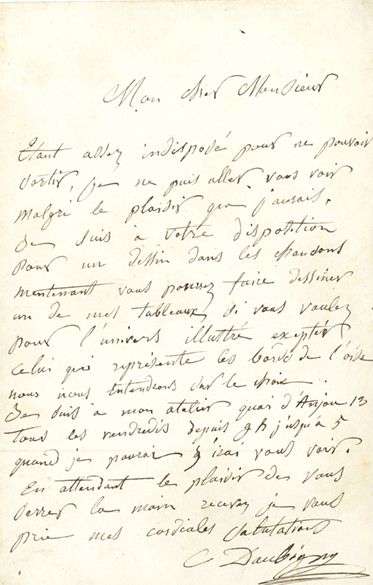 Mon cher Monsieur
Etant assez indisposé pour ne pouvoir
sortir, je ne puis aller vous voir
malgré le plaisir que j'aurais.
Je suis à votre disposition
pour un dessin dans les chansons
maintenant vous pouvez faire dessiner
un de mes tableaux si vous voulez
pour l'univers illustré excepté
celui qui représente les bords de l'oise
nous nous entendrons sur le choix.
Je suis a mon atelier quai d'Anjou 13
tous les vendredis depuis 9 h jusqu'a 5
quand je pourrai j'irai vous voir.
En attendant le plaisir de vous
serrer la main recevez je vous
prie mes cordiales salutations
C Daubigny